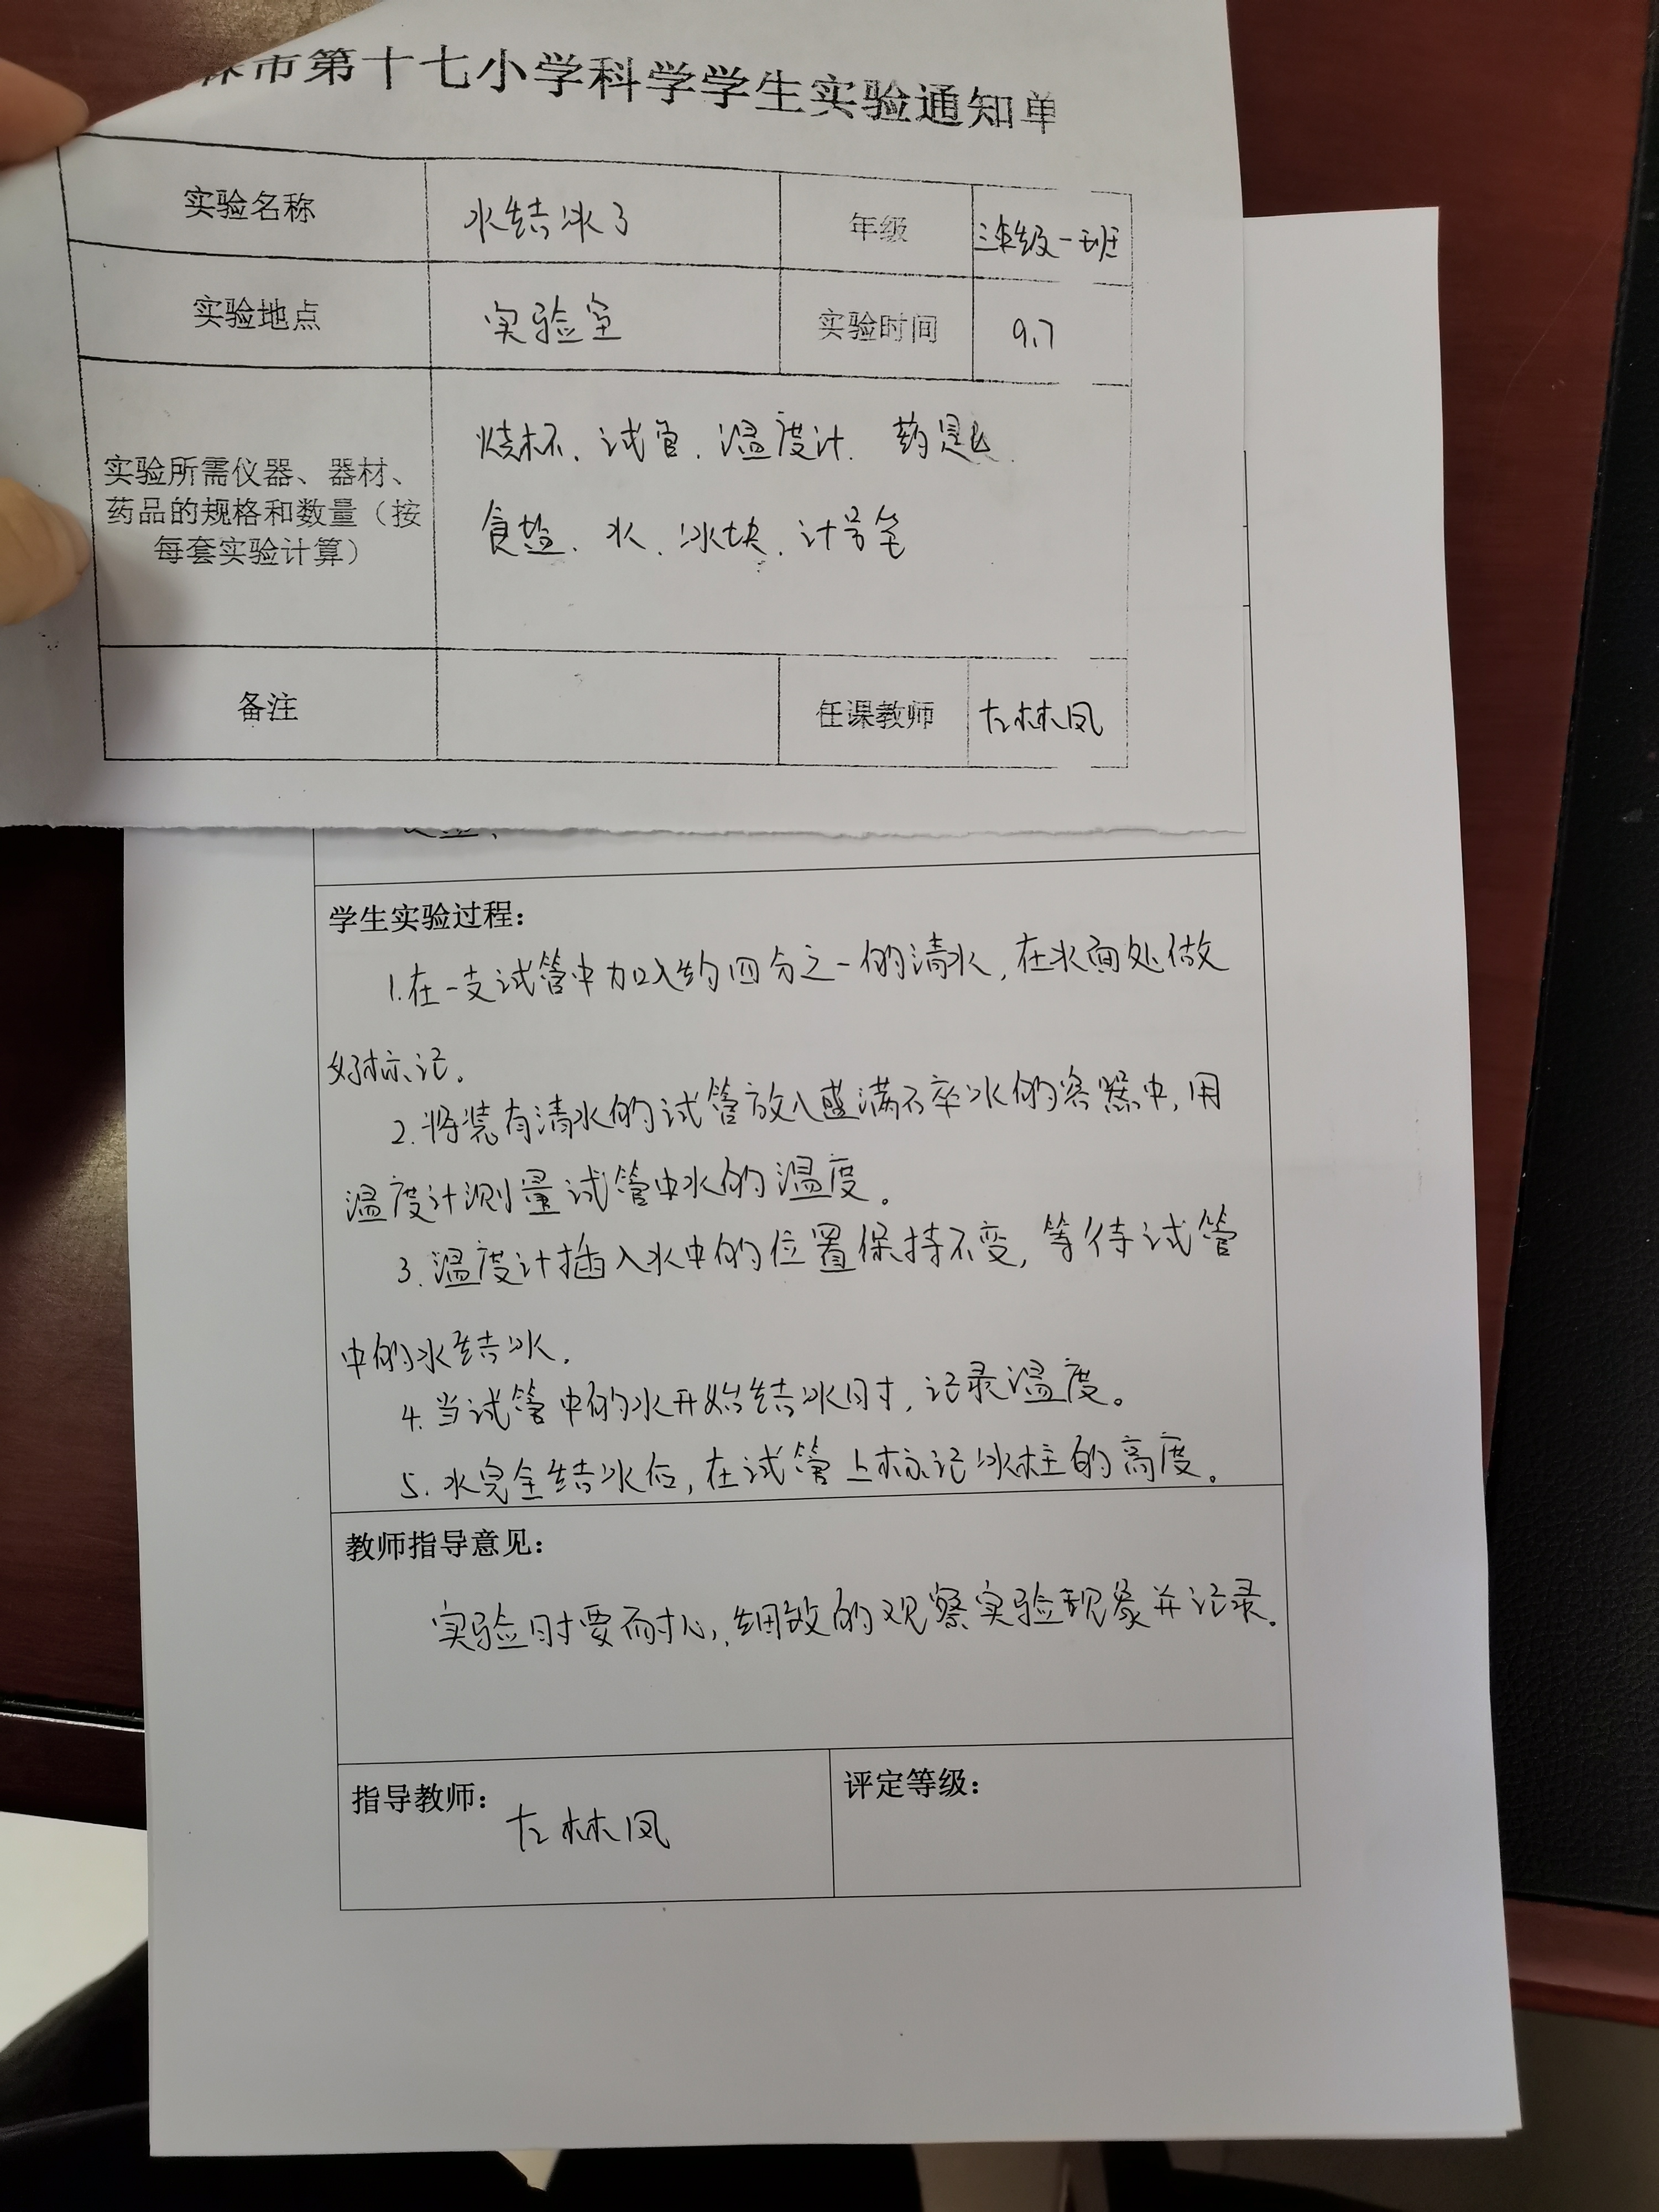 市第十七小学科学学生实验通知单
实验名称 水结冰了 年级 三年级一班
实验地点 实验室 实验时间 9.7
实验所需仪器、器材、
药品的规格和数量（按
每套实验计算）
烧杯、试管、温度计、药匙、
食盐、水、冰块、计号笔
备注 任课教师 左林凤
学生实验过程：
1.在一支试管中加入约四分之一的清水，在水面处做
好标记。
2.将装有清水的试管放入盛满碎冰的容器中，用
温度计测量试管中水的温度。
3.温度计插入水中的位置保持不变，等待试管
中的水结冰。
4.当试管中的水开始结冰时，记录温度。
5.水完全结冰后，在试管上标记冰柱的高度。
教师指导意见：
实验时要耐心，细致的观察实验现象并记录。
指导教师： 左林凤 评定等级：